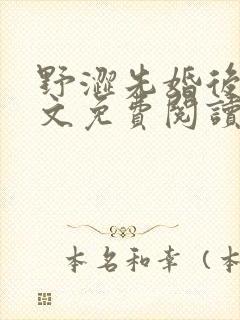 野澀先婚後
文免費閱讀
本名和幸（本